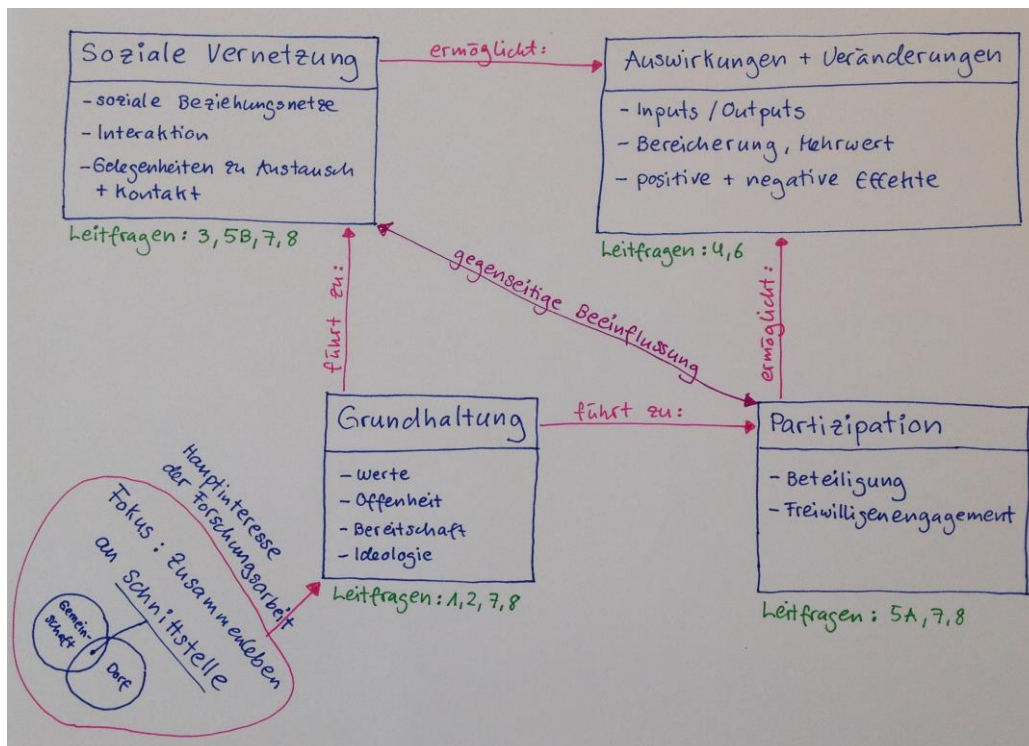 Soziale Vernetzung
- soziale Beziehungsnetze
- Interaktion
- Gelegenheiten zu Austausch
+ Kontakt
Leitfragen: 3, 5B, 7, 8
ermöglicht:
Auswirkungen + Veränderungen
- Inputs / Outputs
- Bereicherung, Mehrwert
- positive + negative Effekte
Leitfragen: 4, 6
führt zu:
gegenseitige Beeinflussung
ermöglicht:
Grundhaltung
- Werte
- Offenheit
- Bereitschaft
- Ideologie
Leitfragen: 1, 2, 7, 8
führt zu:
Partizipation
- Beteiligung
- Freiwilligenengagement
Leitfragen: 5A, 7, 8
Hauptinteresse
der Forschungsarbeit
Fokus: Zusammenleben
an Schnittstelle
Gemein-
schaft
Dorf